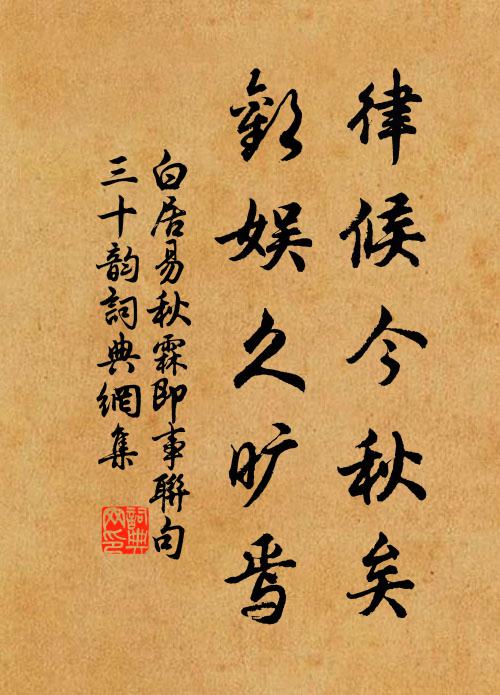 律候今秋矣
歡娱久旷焉
白居易秋霖即事聯句
三十韵詞典網集